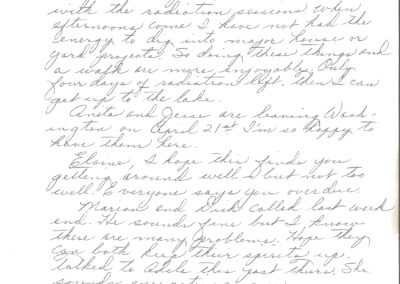 with the radiation sessions when
afternoons come I have not had the
energy to dig into major house or
yard projects. So doing these things and
a walk are more enjoyable. Only
four days of radiation left. then I can
get up to the lake.
Anita and Jesse are leaving Wash-
ington on April 21st I'm so happy to
have them here.
Elaine, I hope this finds you
getting around well & but not too
well. Everyone says you over due.
Marion and Dick called last week
end. He sounds fine but I know
there are many problems. Hope they
can both keep their spirits up.
Talked to Adele this past Thurs. She
sounds